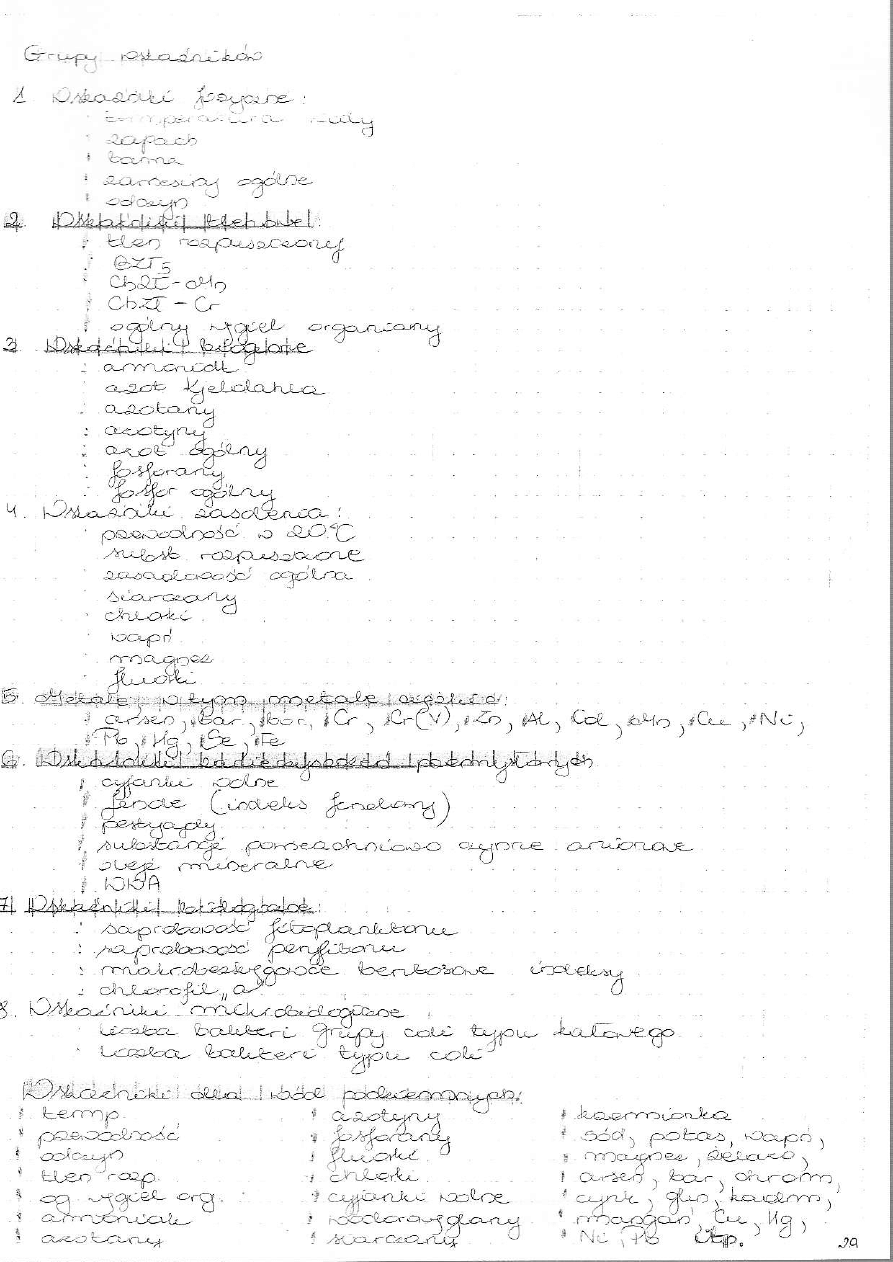 Grupy wskaźników
1. Wskaźniki fizyczne:
temperatura wody
zapach
barwa
zawiesiny ogólne
odczyn
2. Wskaźniki tlenowe:
tlen rozpuszczony
BZT5
ChZT-Mn
ChZT-Cr
ogólny węgiel organiczny
3 Wskaźniki biogenne
amoniak
azot Kjeldahla
azotany
azotyny
azot ogólny
fosforany
fosfor ogólny
4. Wskaźniki zasolenia:
przewodność w 20°C
subst. rozpuszczone
zasadowość ogólna
siarczany
chlorki
wapń
magnez
fluorki
5. Metale, w tym metale ciężkie:
arsen, bar, bor, Cr, Cr(V), Zn, Al, Cd, Mn, Cu, Ni,
Pb, Hg, Se, Fe
6. Wskaźniki zanieczyszczeń przemysłowych
cyjanki wolne
fenole (indeks fenolowy)
pestycydy
substancje powierzchniowo czynne anionowe
oleje mineralne
WWA
7. Wskaźniki biologiczne:
saprobowość fitoplanktonu
saprobowość peryfitonu
makrobezkręgowce bentosowe indeksy
chlorofil „a”
8. Wskaźniki mikrobiologiczne
liczba bakterii grupy coli typu kałowego
liczba bakterii typu coli
Wskaźniki dla wód podziemnych:
temp.
przewodność
odczyn
tlen rozp.
og. węgiel org.
amoniak
azotany
azotyny
fosforany
fluorki
chlorki
cyjanki wolne
wodorowęglany
siarczany
krzemionka
sód, potas, wapń,
magnez, żelazo,
arsen, bar, chrom,
cynk, glin, kadm,
mangan, Cu, Hg,
Ni, Pb itp.
29